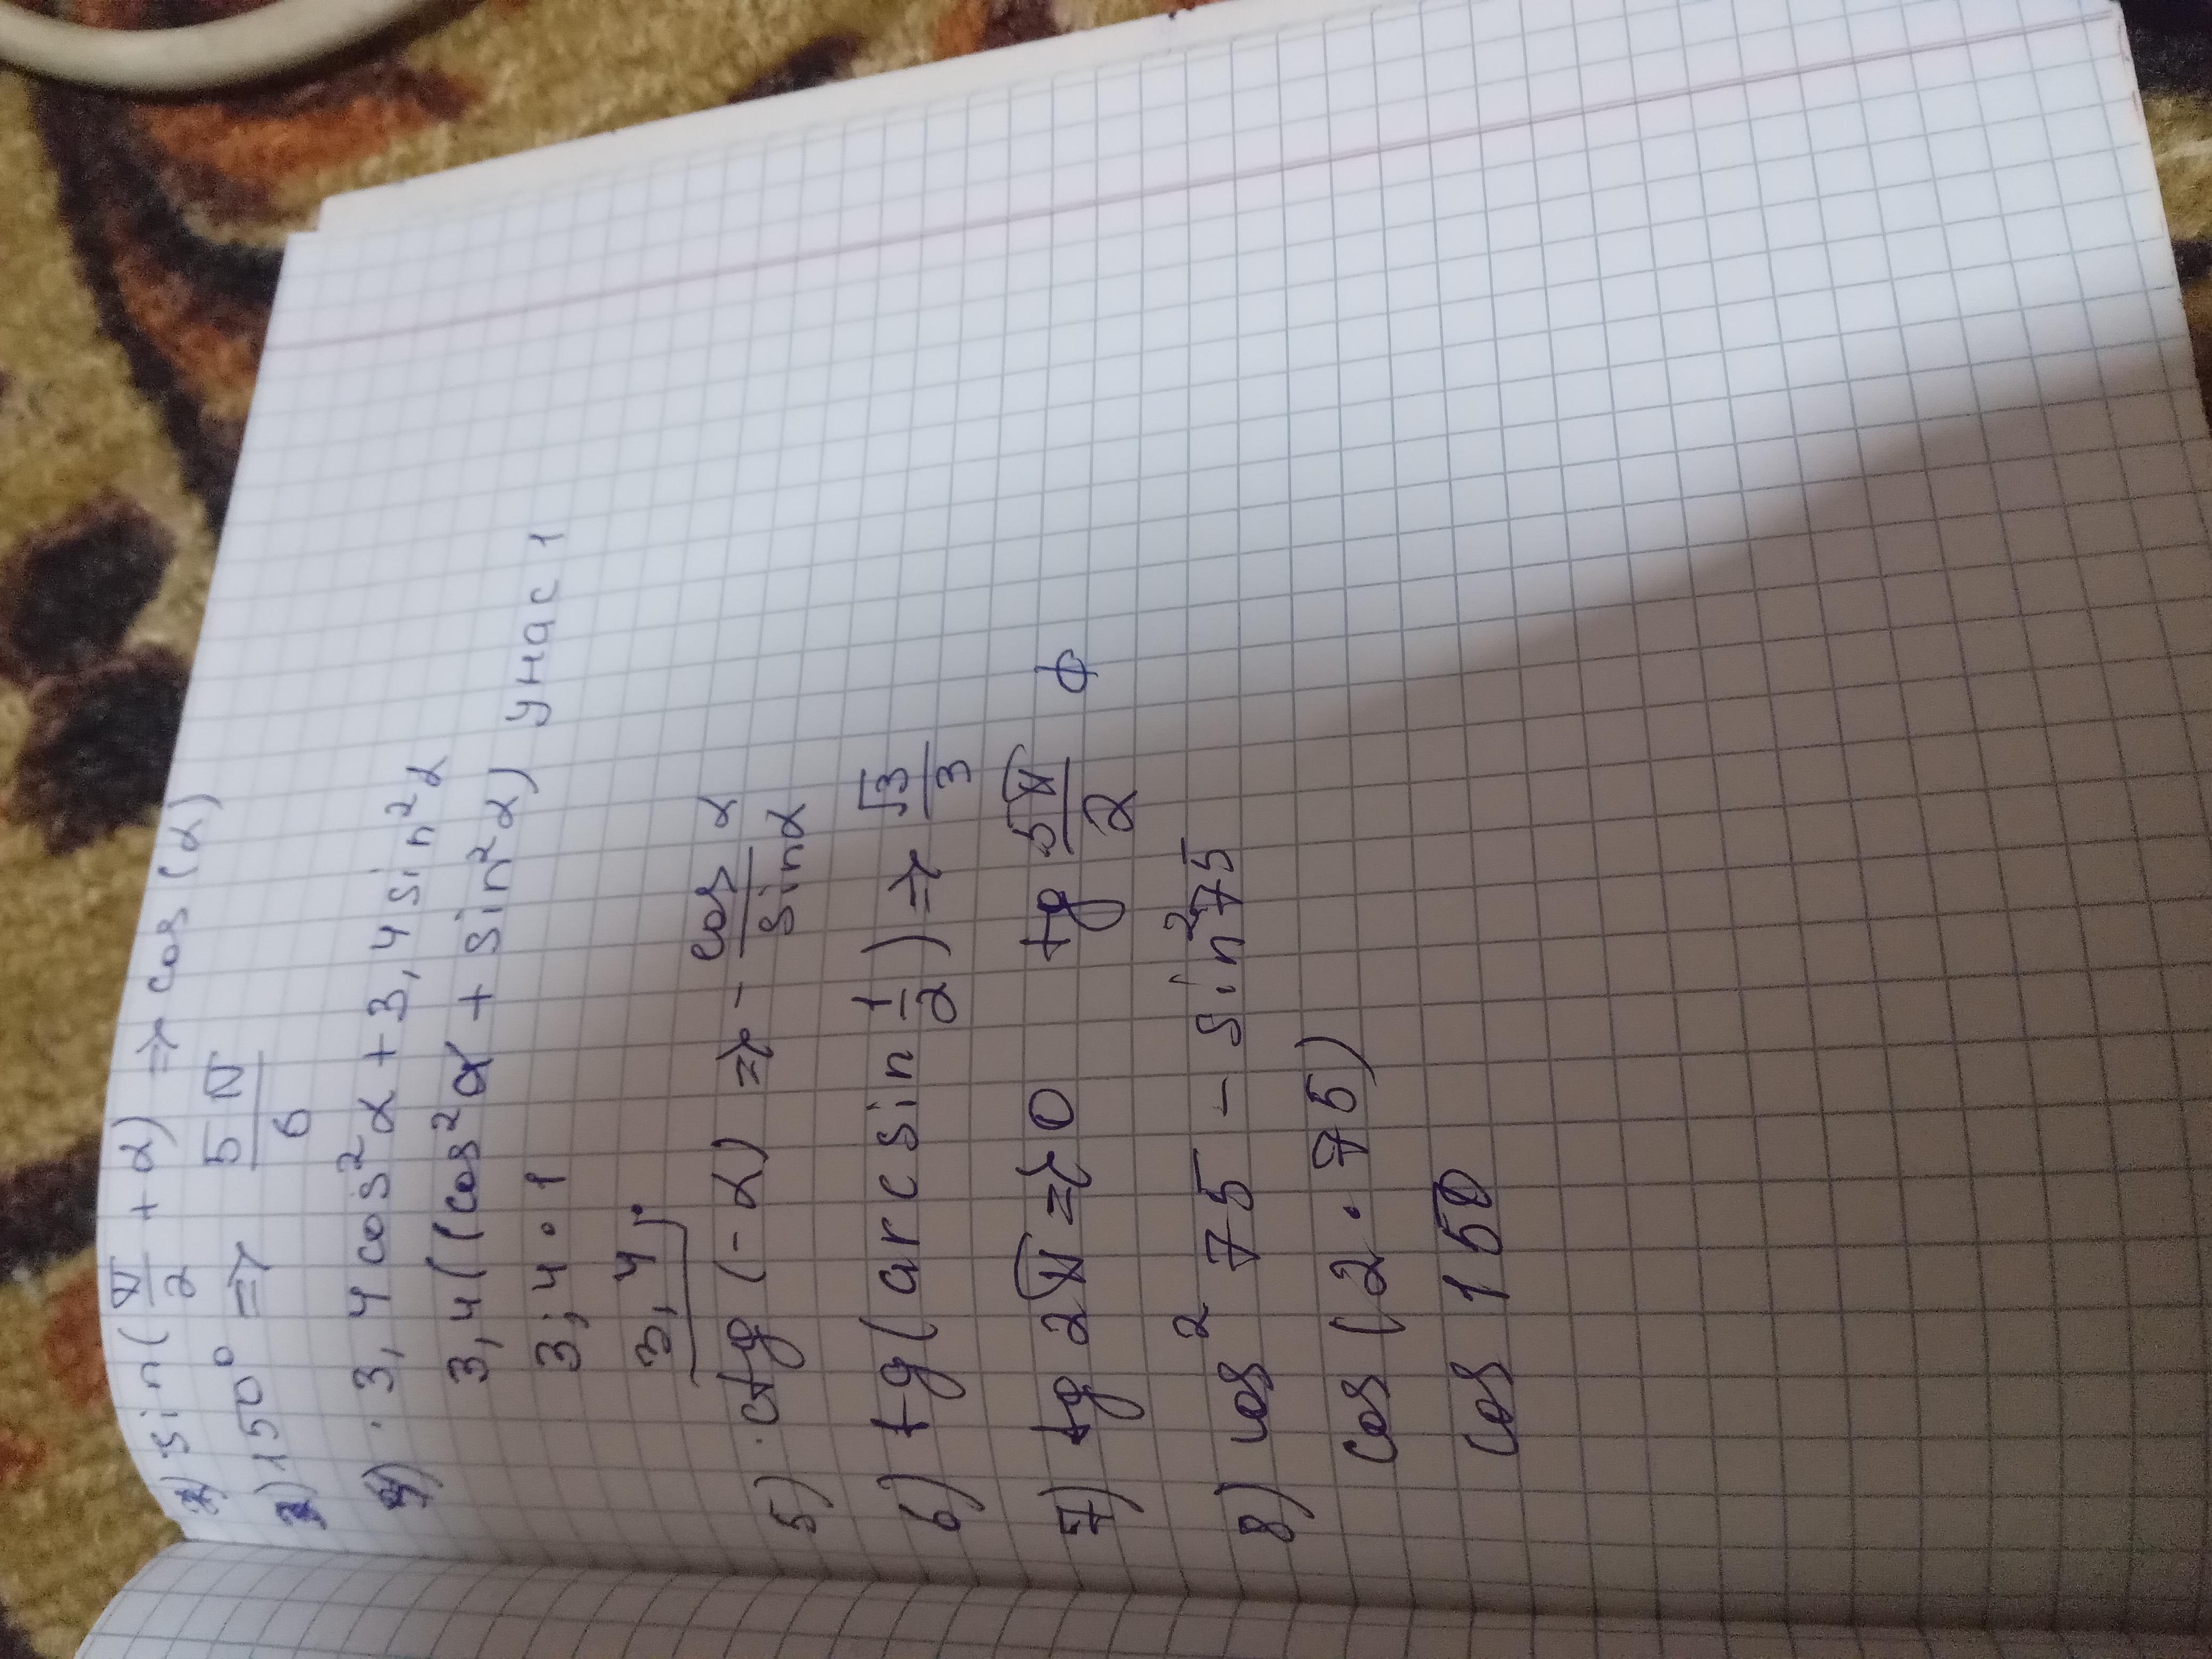 1) sin(π/2 + α) => cos(α)
2) 150° => 5π/6
4) · 3,4 cos²α + 3,4 sin²α
3,4((cos²α + sin²α) унас 1
3,4 · 1
3,4
5) · ctg (-α) => - cos α/sin α
6) tg(arcsin 1/2) => √3/3
7) tg 2π => 0 tg 5π/2 ф
8) cos² 75 - sin² 75
cos (2 · 75)
cos 150